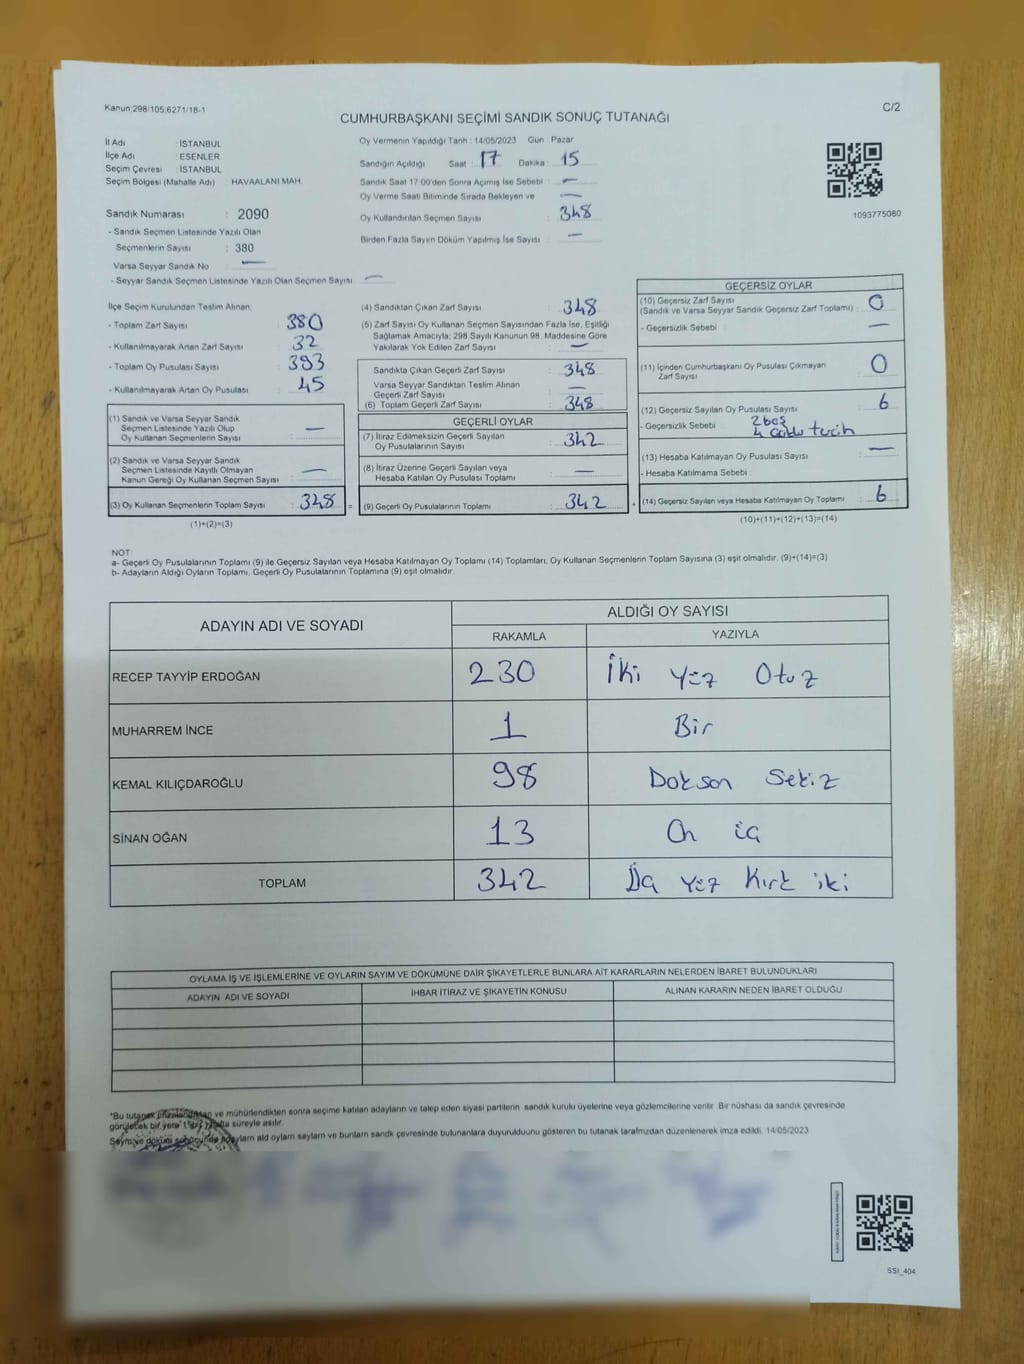 Kanun:298/105;6271/18-1
C/2
CUMHURBAŞKANI SEÇİMİ SANDIK SONUÇ TUTANAĞI
İl Adı : İSTANBUL
İlçe Adı : ESENLER
Seçim Çevresi : İSTANBUL
Seçim Bölgesi (Mahalle Adı) : HAVAALANI MAH.
Sandık Numarası : 2090
- Sandık Seçmen Listesinde Yazılı Olan
Seçmenlerin Sayısı : 380
Varsa Seyyar Sandık No : —
- Seyyar Sandık Seçmen Listesinde Yazılı Olan Seçmen Sayısı : —
Oy Vermenin Yapıldığı Tarih : 14/05/2023 Gün : Pazar
Sandığın Açıldığı Saat : 17 Dakika : 15
Sandık Saat 17:00'den Sonra Açımış İse Sebebi : —
Oy Verme Saati Bitiminde Sırada Bekleyen ve : —
Oy Kullandırılan Seçmen Sayısı : 348
Birden Fazla Sayım Döküm Yapılmış İse Sayısı : —
1093775080
İlçe Seçim Kurulundan Teslim Alınan;
- Toplam Zarf Sayısı : 380
- Kullanılmayarak Artan Zarf Sayısı : 32
- Toplam Oy Pusulası Sayısı : 393
- Kullanılmayarak Artan Oy Pusulası : 45
(1) Sandık ve Varsa Seyyar Sandık
Seçmen Listesinde Yazılı Olup
Oy Kullanan Seçmenlerin Sayısı : —
(2) Sandık ve Varsa Seyyar Sandık
Seçmen Listesinde Kayıtlı Olmayan
Kanun Gereği Oy Kullanan Seçmen Sayısı : —
(3) Oy Kullanan Seçmenlerin Toplam Sayısı : 348 =
(1)+(2)=(3)
(4) Sandıktan Çıkan Zarf Sayısı : 348
(5) Zarf Sayısı Oy Kullanan Seçmen Sayısından Fazla İse, Eşitliği
Sağlamak Amacıyla, 298 Sayılı Kanunun 98. Maddesine Göre
Yakılarak Yok Edilen Zarf Sayısı : —
Sandıkta Çıkan Geçerli Zarf Sayısı : 348
Varsa Seyyar Sandıktan Teslim Alınan
Geçerli Zarf Sayısı : —
(6) Toplam Geçerli Zarf Sayısı : 348
GEÇERLİ OYLAR
(7) İtiraz Edilmeksizin Geçerli Sayılan
Oy Pusulalarının Sayısı : 342
(8) İtiraz Üzerine Geçerli Sayılan veya
Hesaba Katılan Oy Pusulası Toplamı : —
(9) Geçerli Oy Pusulalarının Toplamı : 342 +
GEÇERSİZ OYLAR
(10) Geçersiz Zarf Sayısı
(Sandık ve Varsa Seyyar Sandık Geçersiz Zarf Toplamı) : 0
- Geçersizlik Sebebi : —
(11) İçinden Cumhurbaşkanı Oy Pusulası Çıkmayan
Zarf Sayısı : 0
(12) Geçersiz Sayılan Oy Pusulası Sayısı : 6
- Geçersizlik Sebebi : 2 boş
4 çoklu tercih
(13) Hesaba Katılmayan Oy Pusulası Sayısı : —
- Hesaba Katılmama Sebebi :
(14) Geçersiz Sayılan veya Hesaba Katılmayan Oy Toplamı : 6
(10)+(11)+(12)+(13)=(14)
NOT:
a- Geçerli Oy Pusulalarının Toplamı (9) ile Geçersiz Sayılan veya Hesaba Katılmayan Oy Toplamı (14) Toplamları, Oy Kullanan Seçmenlerin Toplam Sayısına (3) eşit olmalıdır. (9)+(14)=(3)
b- Adayların Aldığı Oyların Toplamı, Geçerli Oy Pusulalarının Toplamına (9) eşit olmalıdır.
ADAYIN ADI VE SOYADI ALDIĞI OY SAYISI
RAKAMLA YAZIYLA
RECEP TAYYİP ERDOĞAN 230 İki Yüz Otuz
MUHARREM İNCE 1 Bir
KEMAL KILIÇDAROĞLU 98 Doksan Sekiz
SİNAN OĞAN 13 On üç
TOPLAM 342 Üç Yüz Kırk iki
OYLAMA İŞ VE İŞLEMLERİNE VE OYLARIN SAYIM VE DÖKÜMÜNE DAİR ŞİKAYETLERLE BUNLARA AİT KARARLARIN NELERDEN İBARET BULUNDUKLARI
ADAYIN ADI VE SOYADI İHBAR İTİRAZ VE ŞİKAYETİN KONUSU ALINAN KARARIN NEDEN İBARET OLDUĞU
*Bu tutanak imzalandıktan ve mühürlendikten sonra seçime katılan adayların ve talep eden siyasi partilerin sandık kurulu üyelerine veya gözlemcilerine verilir. Bir nüshası da sandık çevresinde
görülebilecek bir yere 1 (bir) hafta süreyle asılır.
Sayım ve döküm sonucunda adayların ald oyların sayların ve bunların sandk çevresinde bulunanlara duyurulduunu gösteren bu tutanak tarafmzdan düzenlenerek imza edildi. 14/05/2023
SSI_404